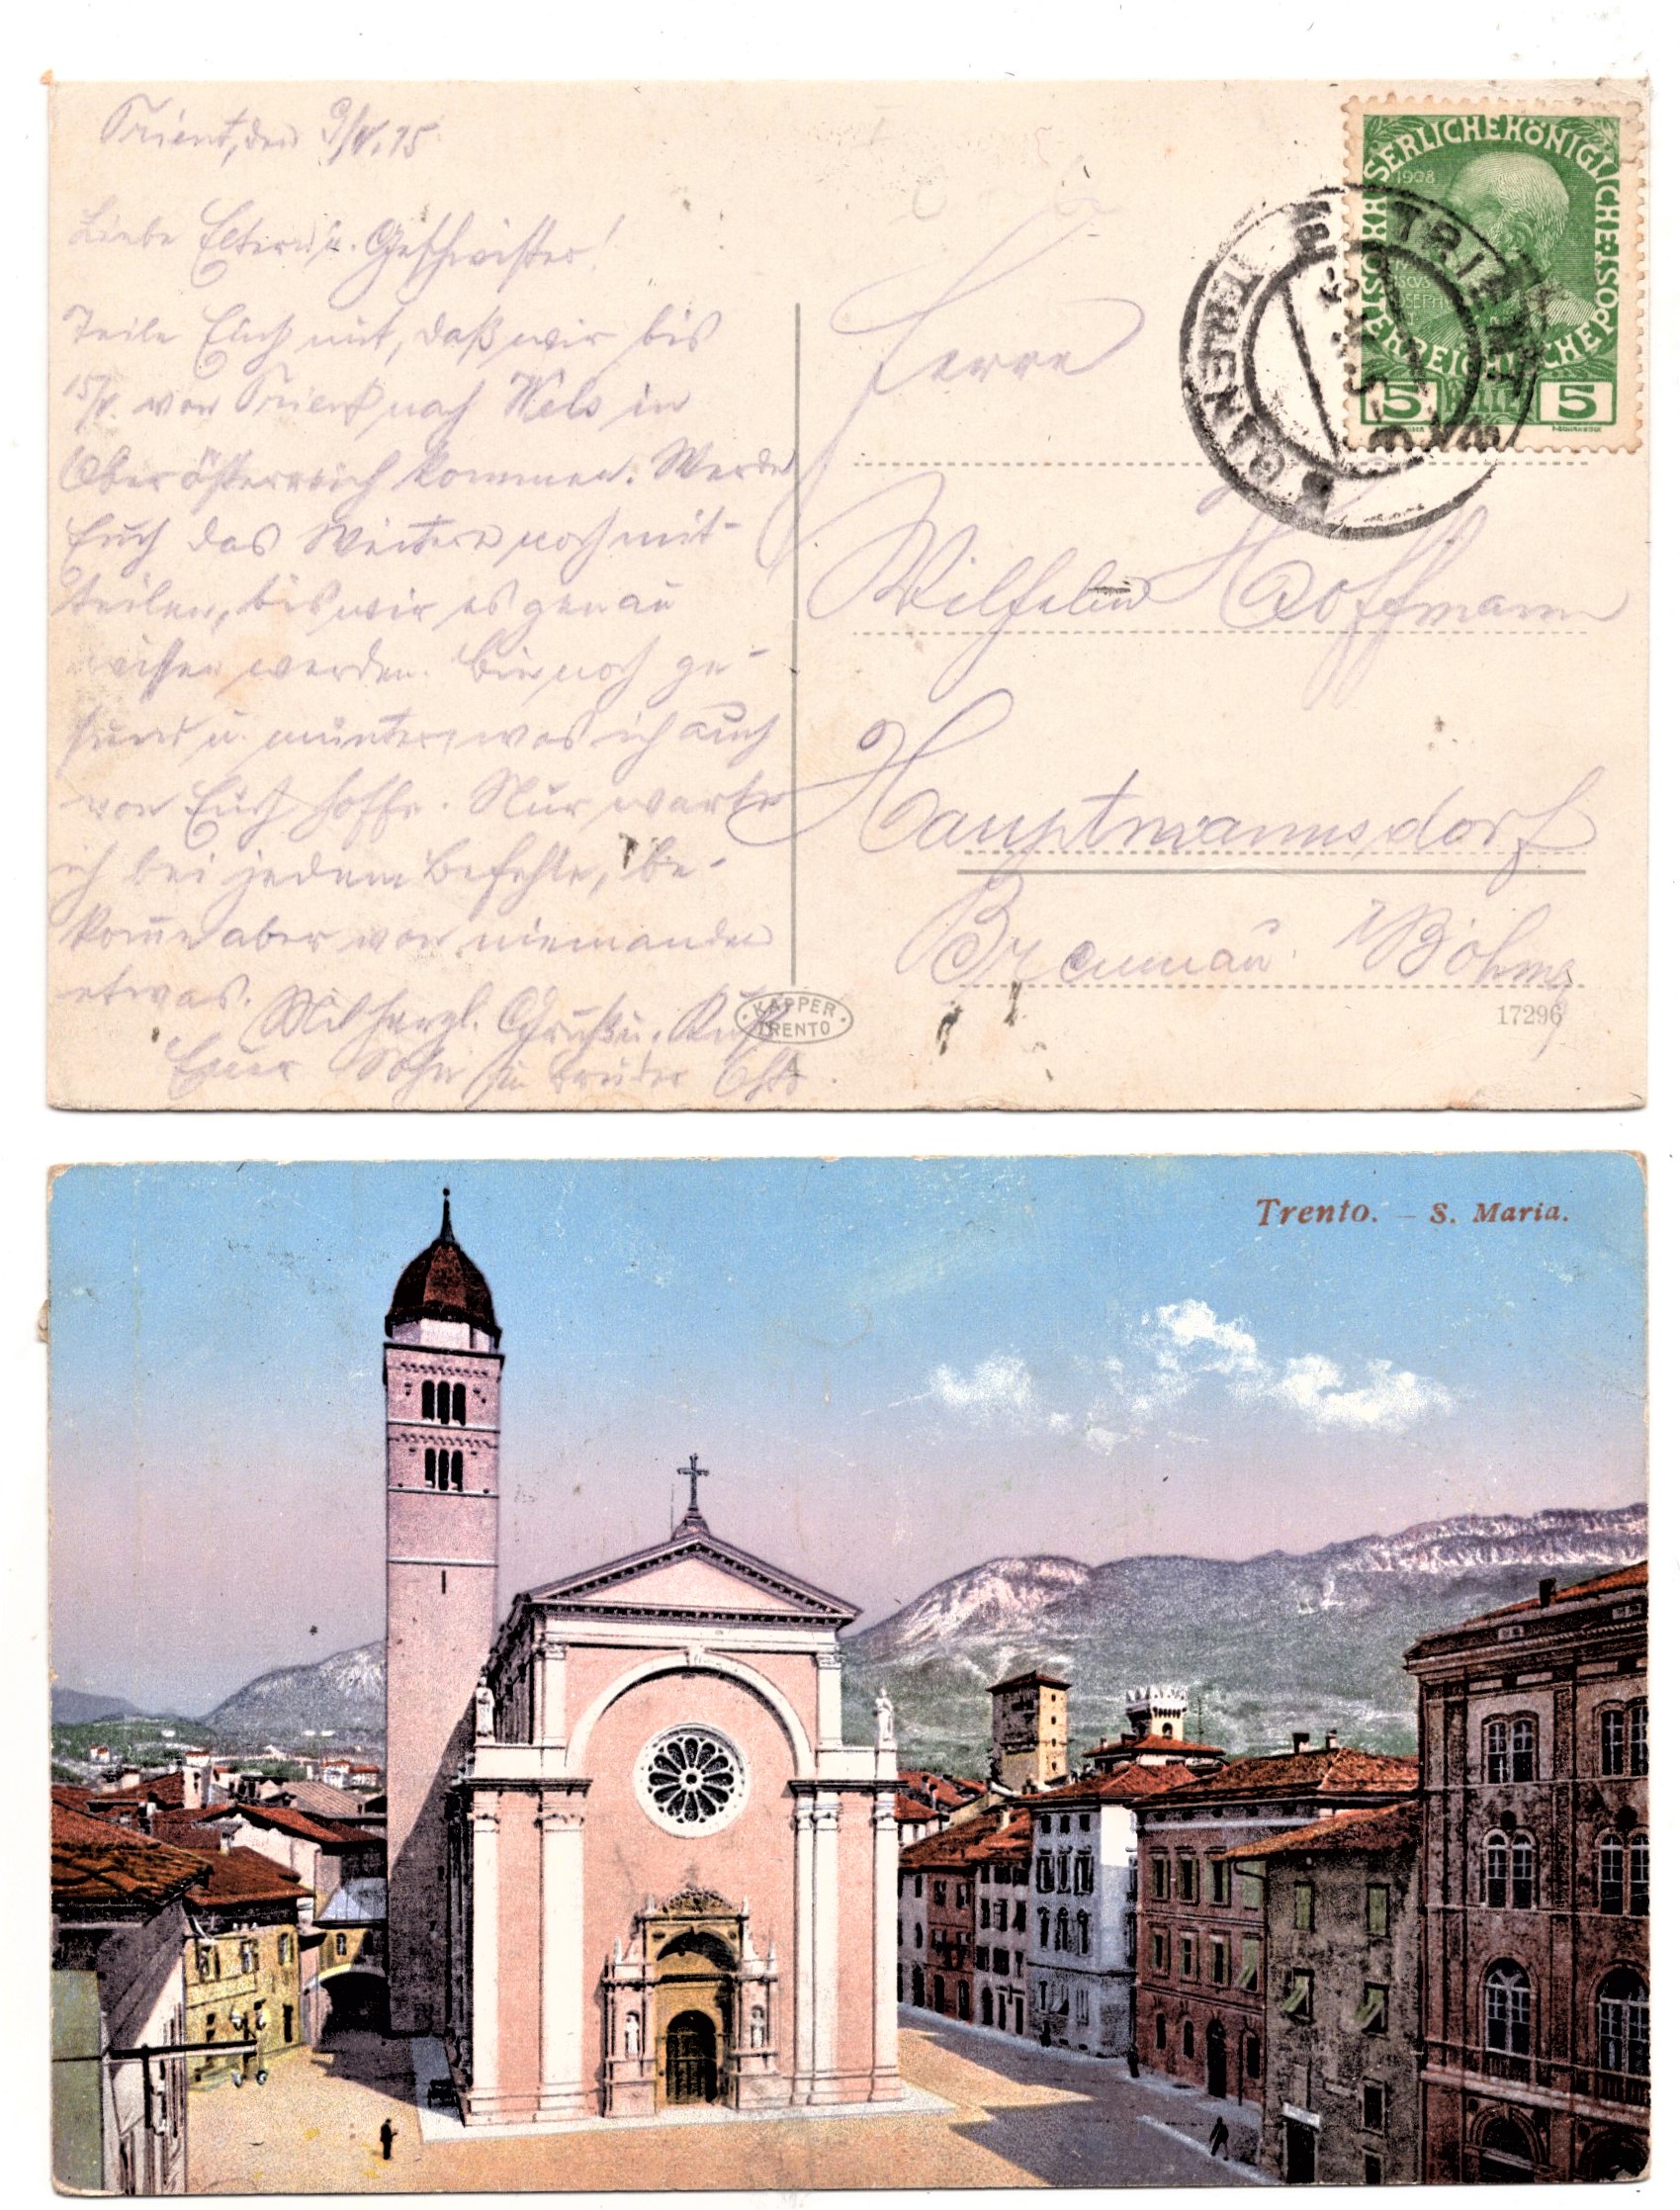 Trient, den 9/V. 15
Liebe Eltern u. Geschwister!
Teile Euch mit, daß wir bis
15/V. von Trient nach Wels in
Oberösterreich kommen. Werde
Euch das Weitere noch mit-
teilen, bis wir es genau
wissen werden. Bin noch ge-
sund u. munter, was ich auch
von Euch hoffe. Nur warte
ich bei jedem Befehle, be-
komme aber von niemanden
etwas.
Mit herzl. Gruß u. Kuß
Euer Sohn u. Bruder
KAPPER
TRENTO
KAISERLICHEKÖNIGLICHE ÖSTERREICHISCHE POST
1908
5 HELLER 5
TRIENT
TRENTO
Herrn
Wilhelm Hoffmann
Hauptmannsdorf
Braunau Böhmen
17296
Trento. – S. Maria.